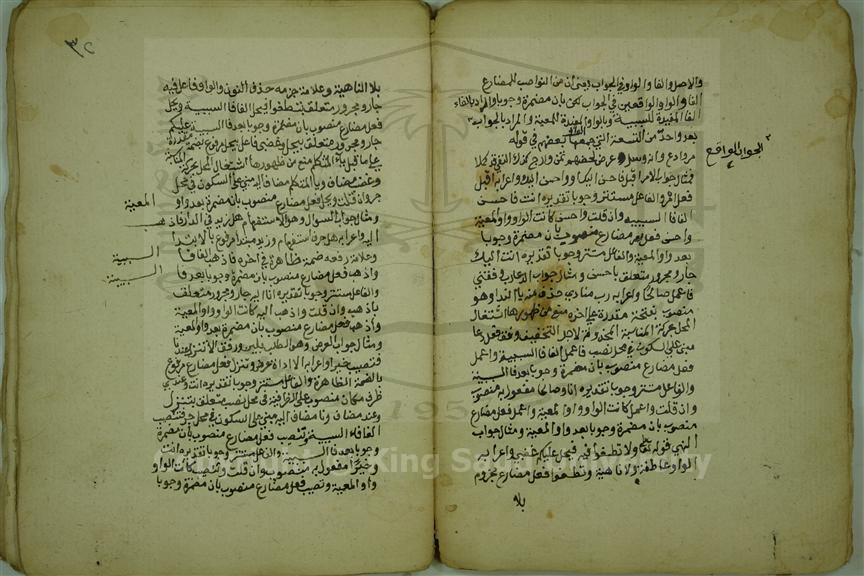 والاصل والفا والواو في الجواب يعني ان من النواصب للمضارع
الفا والواو الواقعين في الجواب لكن بان مضمرة وجوبا والمراد بالفاء
الفا المفيدة للسببية وبالواو المفيدة المعية والمراد بالجواب
الجواب الواقع
بعد واحد من التسعة التي جمعها بعضهم في قوله
مر وادع وانه وسل واعرض لحضهم تمن وارج كذاك النفي قد كملا
فمثال جواب الامر اقبل فاحسن اليك او واحسن اليك واعرابه اقبل
فعل امر والفاعل مستتر وجوبا تقديره انت فاحسن
الفا فا السببية وان قلت واحسن كانت الواو واو المعية
واحسن فعل مضارع منصوب بان مضمرة وجوبا
بعد واو المعية والفاعل مستتر وجوبا تقديره انا اليك
جار ومجرور متعلق باحسن ومثال جواب الدعا رب وفقني
فاعمل صالحا واعرابه رب منادي حذف منه يا الندا وهو
منصوب بفتحة مقدرة على اخره منع من ظهورها اشتغال
المحل بحركة المناسبة المحذوفة لاجل التخفيف وفق فعل دعا
مبني على السكون في محل نصب فاعمل الفا فا السببية واعمل
فعل مضارع منصوب بان مضمرة وجوبا بعد فا السببية
والفاعل مستتر وجوبا تقديره انا وصالحا مفعول به منصوب
وان قلت واعمل كانت الواو واو المعية واعمل فعل مضارع
منصوب بان مضمرة وجوبا بعد واو المعية ومثال جواب
النهي قوله تعالى ولا تطغوا فيه فيحل عليكم غضبي واعرابه
الواو عاطفة ولا ناهية وتطغوا فعل مضارع مجزوم
بلا
٣٢
بلا الناهية وعلامة جزمه حذف النون والواو فاعل فيه
جار ومجرور متعلق بتطغوا فيحل الفا فا السببية ويحل
فعل مضارع منصوب بان مضمرة وجوبا بعد فا السببية عليكم
جار ومجرور متعلق بيحل غضبي فاعل يحل مرفوع بضمة مقدرة
على ما قبل ياء المتكلم منع من ظهورها اشتغال المحل بحركة المناسبة
وغضب مضاف ويا المتكلم مضاف اليه مبني على السكون في محل
جر وان قلت ويحل فعل مضارع منصوب بان مضمرة بعد واو
المعية
ومثال جواب السوال وهو الاستفهام هل زيد في الدار فاذهب
اليه واعرابه هل حرف استفهام وزيد مبتدا مرفوع بالابتدا
وعلامة رفعه ضمة ظاهرة في اخره فاذهب الفا فا
السببية
واذهب فعل مضارع منصوب بان مضمرة وجوبا بعد فا
السببية
والفاعل مستتر وجوبا تقديره انا اليه جار ومجرور متعلق
باذهب وان قلت واذهب اليه كانت الواو واو المعية
واذهب فعل مضارع منصوب بان مضمرة بعد واو المعية
ومثال جواب العرض وهو الطلب بلين ورفق الا تنزل عندنا
فتصيب خيرا واعرابه الا اداة عرض وتنزل فعل مضارع مرفوع
بالضمة الظاهرة والفاعل مستتر وجوبا تقديره انت وعند
ظرف مكان منصوب على الظرفية في محل نصب متعلق بتنزل
وعند مضاف ونا مضاف اليه مبني على السكون في محل جر فتصيب
الفا فاء السببية وتصيب فعل مضارع منصوب بان مضمرة
وجوبا بعد فا السببية والفاعل مستتر وجوبا تقديره انت
وخيرا مفعول به منصوب وان قلت وتصيب كانت الواو
واو المعية وتصيب فعل مضارع منصوب بان مضمرة وجوبا